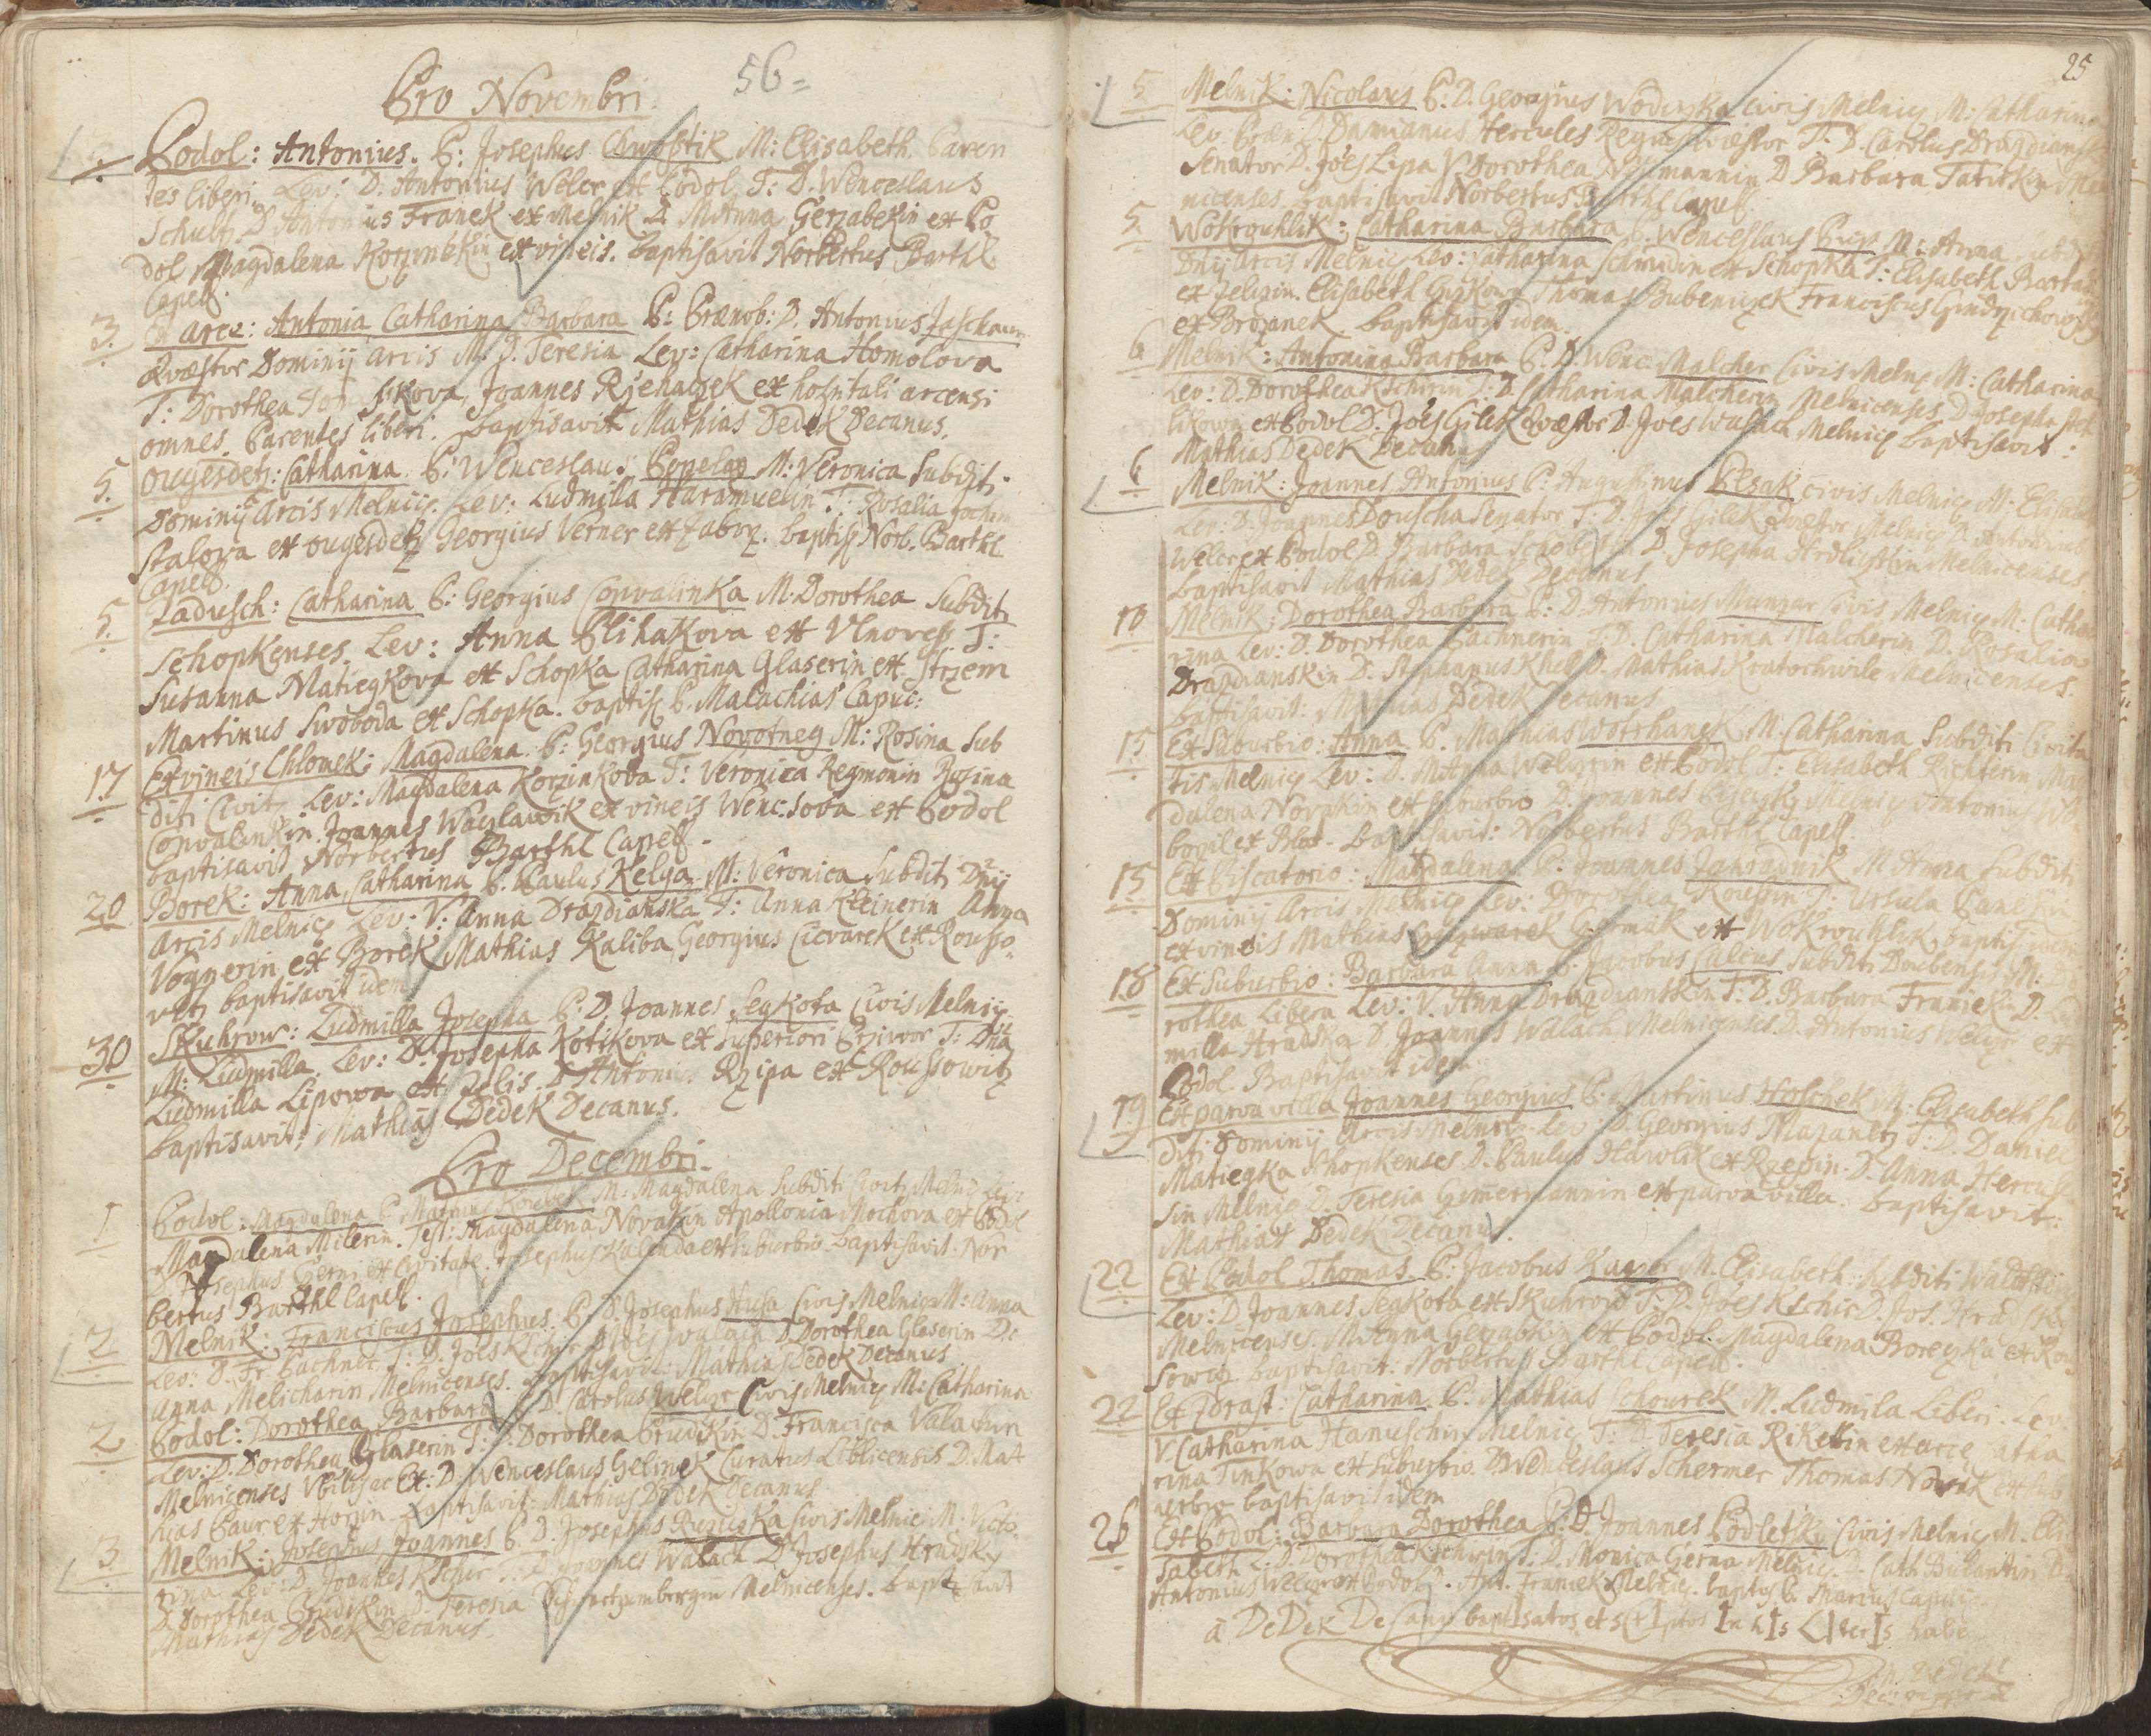 Pro Novembri.
56=
Podol: Antonius. P: Josephus Chwosstik M: Elisabeth. Paren
tes liberi. Lev: D. Antonius Welcz ex Podol T: D. Wenceslaus
Schultz D Antonius Franek ex Melnik D. M Anna Gerzabekin ex Po
dol Magdalena Korzinkin ex vineis. baptisavit Norbertus Barthl
Capell.
3. Ex arce: Antonia Catharina Barbara P: Prænob: D. Antonius Jaschaw
Qvæstor Dominij arcis M. D. Teresia Lev: Catharina Homolova
T: Dorothea Joannes Rzehaczek ex hospitali arcensi
omnes. Parentes liberi. baptisavit Mathias Dedek Decanus.
5. Ougesdetz: Catharina P: Wenceslaus Popelar M: Veronica subditi
Dominij Arcis Melnicij. Lev: Ludmilla Haramuelin T: Rosalia
stalova ex ougesdetz Georgius Verner ex Zaborz. baptis Norb. Barthl
Capell.
5. Zadusch: Catharina P: Georgius Convalinka M. Dorothea Subditi
Schopkenses. Lev: Anna Plihakova ex Vlnoves. T:
Susanna Matiegkova ex Schopka Catharina Glaserin ex Strzem
Martinus Swoboda ex Schopka. baptis P. Malachias Capuc:
17 Ex vineis Chlomek: Magdalena P: Georgius Novotney M: Rosina Sub
diti Civit Lev: Magdalena Korzinkova T: Veronica Regmonin Rosina
Convalinkin. Joannes Waczlawik ex vineis Wenc. Sova ex Podol
baptisavit Norbertus Barthl Capell.
20 Borek: Anna Catharina P. Paulus Kelga M: Veronica Subditi Dnij
Arcis Melnic Lev: V: Anna Drazdianska T: Anna Kleinerin Anna
Vognerin ex Borek Mathias Kaliba Georgius Cicvarek ex Rousso
vitz baptisavit idem
30 Skuhrow: Ludmilla Josepha P: D. Joannes Segkota Civis Melnij
M: Ludmilla. Lev: D. Josepha Kotikova ex superiori Przivor T: Dna
Ludmilla Lipowa ex Zelis. D Antonius Rzipa ex Roussowitz
baptisavit: Mathias Dedek Decanus.
Pro Decembri.
1 Podol: Magdalena P Mathias M: Magdalena Subditi Civit Melnic Lev:
Magdalena Milerin. Test: Magdalena Novakin Apollonia Mochova ex Podol
Josephus Cerni ex Civitate. Josephus Kalenda ex suburbio baptisavit: Nor
bertus Barthl Capell.
2 Melnik: Franciscus Josephus. P: D. Josephus Husa Civis Melnic M: Anna
Lev: D. Fr. Bachner. T: D. Joes Kschir D Joes Walach D Dorothea Glaserin D:
Anna Melicharin Melnicenses. baptisavit: Mathias Dedek Decanus
2 Podol: Dorothea Barbara P D. Carolus Welcz Civis Melnic M: Catharina
Lev: D. Dorothea Glaserin T: D. Dorothea Prudkin D. Francisca Valachin
Melnicenses Ex: D. Wenceslaus Gelinek Curatus Liblicensis D. Mat
hias Baur ex Horzin. baptisavit: Mathias Dedek Decanus
3 Melnik: Josephus Joannes P D. Josephus Ruziczka Civis Melnic M. Victo
rina Lev: D. Joannes Kschir T. D. Joannes Walach D Josephus Hradsky
D. Dorothea Prudkin D. Teresia Schwartzembergin Melnicenses. baptisavit
Mathias Dedek Decanus.
25
5 Melnik: Nicolaus P: D. Georgius Wodinska civis Melnic M: Catharina
Lev: Prænob. Damianus Hercules Regius Qvæstor T: D. Carolus Drazdiansk
Senator D. Joes Lipa V Dorothea Neumannin D Barbara Mel
nicenses baptisavit Norbertus Barthl Capell
5. Wokrouhlik: Catharina Barbara P. Wenceslaus M: Anna subdi
Dnij Arcis Melnic Lev: Catharina Schmidin ex Schopka T: Elisabeth
ex Jelczin. Elisabeth Thomas Bubeniczek Franciscus
ex Brozanek baptisavit idem
6 Melnik: Antonina Barbara P. D. Wenc. Malcher Civis Melnic M: Catharina
Lev: D. Dorothea Kschirin T: D. Catharina Malcherin Melnicenses D Josepha
likowa ex Podol D. Joes Gilek Qvæstor D. Joes Walach Melnic baptisavit:
Mathias Dedek Decanus
6 Melnik: Joannes Antonius P: Augustinus Plzak civis Melnic M: Elisabeth
Lev: D. Joannes Douscha Senator T D. Joes Gilek Qvæstor Melnic D. Antonius
Welcz ex Podol D. Barbara D Josepha Hrdliczkin Melnicenses
baptisavit Mathias Dedek Decanus
10 Melnik: Dorothea Barbara P: D. Antonius Munzar Civis Melnic M: Catha
rina Lev: D. Dorothea Bachnerin T: D. Catharina Malcherin D. Rosalia
Drazdianskin D. Stephanus Khel D. Mathias Kratochwile Melnicenses.
baptisavit: Mathias Dedek Decanus
15 Ex Suburbio: Anna P. Mathias Wotrhanek M. Catharina Subditi Civita
tis Melnic Lev: D. M Anna Welczin ex Podol T: Elisabeth Richterin Mag
dalena Novakin ex suburbio D. Joannes Melnic Antonius
ex Blat. baptisavit: Norbertus Barthl Capell.
15 Ex Piscatorio: Magdalena P: Joannes Zahradnik M Anna Subditi
Dominij Arcis Melnic Lev: Dorothea T: Ursula
ex vineis Mathias ex Wokrouhlik baptis idem
18 Ex Suburbio: Barbara Anna P. Jacobus Calcus Subditi Doubensis M: Do
rothea Libera Lev: V. Anna Drazdianskin T: D. Barbara Franiekin D. Lud
milla Hradska D Joannes Walach Melnicenses D. Antonius Welcz ex
Podol Baptisavit idem
19 Ex parva villa Joannes Georgius P: Martinus Hoschek M: Elisabeth Sub
diti Dominij Arcis Melnic. Lev: D. Georgius Mazanetz T: D. Daniel
Matiegka Schopkenses D. Paulus Hawlik ex Rzepin. D. Anna Hercule
sin Melnic D. Teresia Gimermannin ex parva villa. baptisavit:
Mathias Dedek Decanus.
22 Ex Podol Thomas P: Jacobus M. Elisabeth: Subditi
Lev: D Joannes Segkota ex Skuhrow T: D. Joes Kschir D. Jos. Hradsky
Melnicenses. M Anna Gerzabkin ex Podol. Magdalena Boreczka ex Rou
sowitz baptisavit: Norbertus Barthl Capell.
22 Ex Zdrast: Catharina. P: Mathias Schourek M. Ludmila Liberi. Lev.
V. Catharina Hanuschin Melnic T: D. Teresia Rikettin ex arce Catha
rina Tinkowa ex suburbio. D. Wenceslaus Schermer Thomas Novak ex sub
urbio baptisavit idem
26 Ex Podol: Barbara Dorothea P: D. Joannes Podletzky Civis Melnic M. Eli
sabeth L: D. Dorothea Kschirin T: D. Monica Gerna Melnic. D. Cath D.
Antonius Welcz ex Podol D. Ant. Franiek Melnic. baptis P. Marius Capuc
à DeDek DeCano baptIsatos et sCrIptos In hIs LIterIs habe